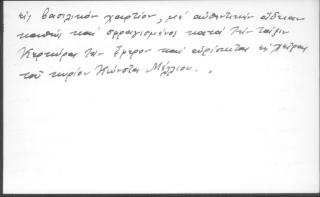 εἰς βασιλικὸν χαρτίον, μὲ αὐθεντικὴν ἄδειαν
καθὼς καὶ σφραγισμένος κατὰ τὴν τάξιν
Κερκύρας τὴν σήμερον καὶ εὑρίσκεται εἰς χεῖρας
τοῦ κυρίου Κώνστα